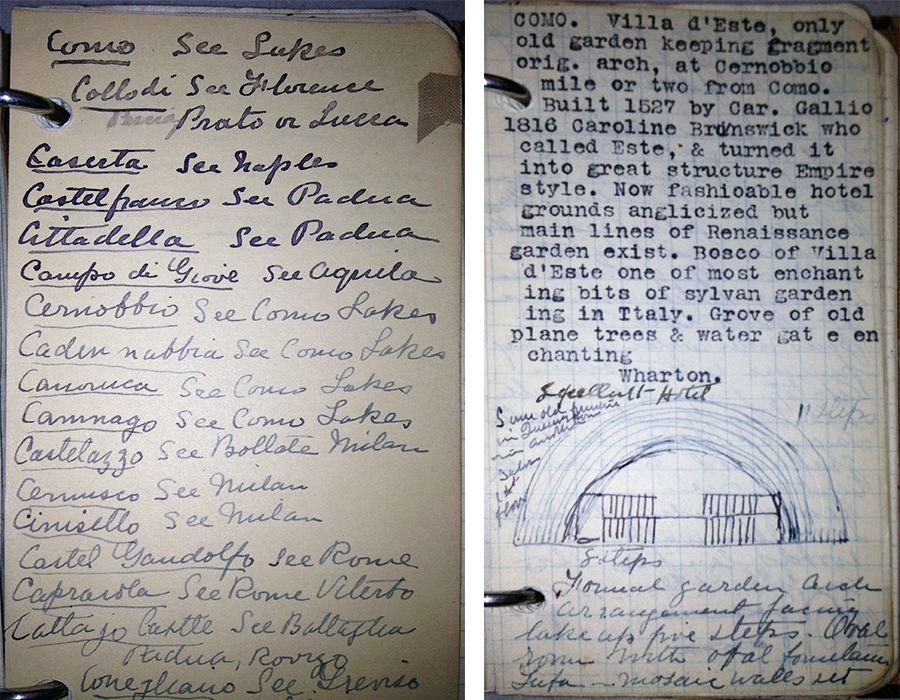 Como See Lakes
Collodi See Florence
Prato or Lucca
Caserta See Naples
Castelfranco See Padua
Cittadella See Padua
Campo di Giove See Aquila
Cernobbio See Como Lakes
Cadennabbia See Como Lakes
See Como Lakes
Camnago See Como Lakes
Castelazzo See Bollate Milan
Cernusco See Milan
Cinisello See Milan
Castel Gandolfo See Rome
Caprarola See Rome Viterbo
Cattajo Castle See Battaglia
Padua, Rovigo
Conegliano See Treviso
COMO. Villa d'Este, only
old garden keeping gragment
orig. arch, at Cernobbio
mile or two from Como.
Built 1527 by Car. Gallio
1816 Caroline Brunswick who
called Este, & turned it
into great structure Empire
style. Now fashioable hotel
grounds anglicized but
main lines of Renaissance
garden exist. Bosco of Villa
d'Este one of most enchant
ing bits of sylvan garden
ing in Italy. Grove of old
plane trees & water gat e en
chanting
Wharton.
Excellent Hotel
Some old
in
in another
Salon
1st
floor
11 steps
8 steps
Formal garden Arch
arrangement facing
lake up five steps. Oval
room with oval
Tufa mosaic walls set